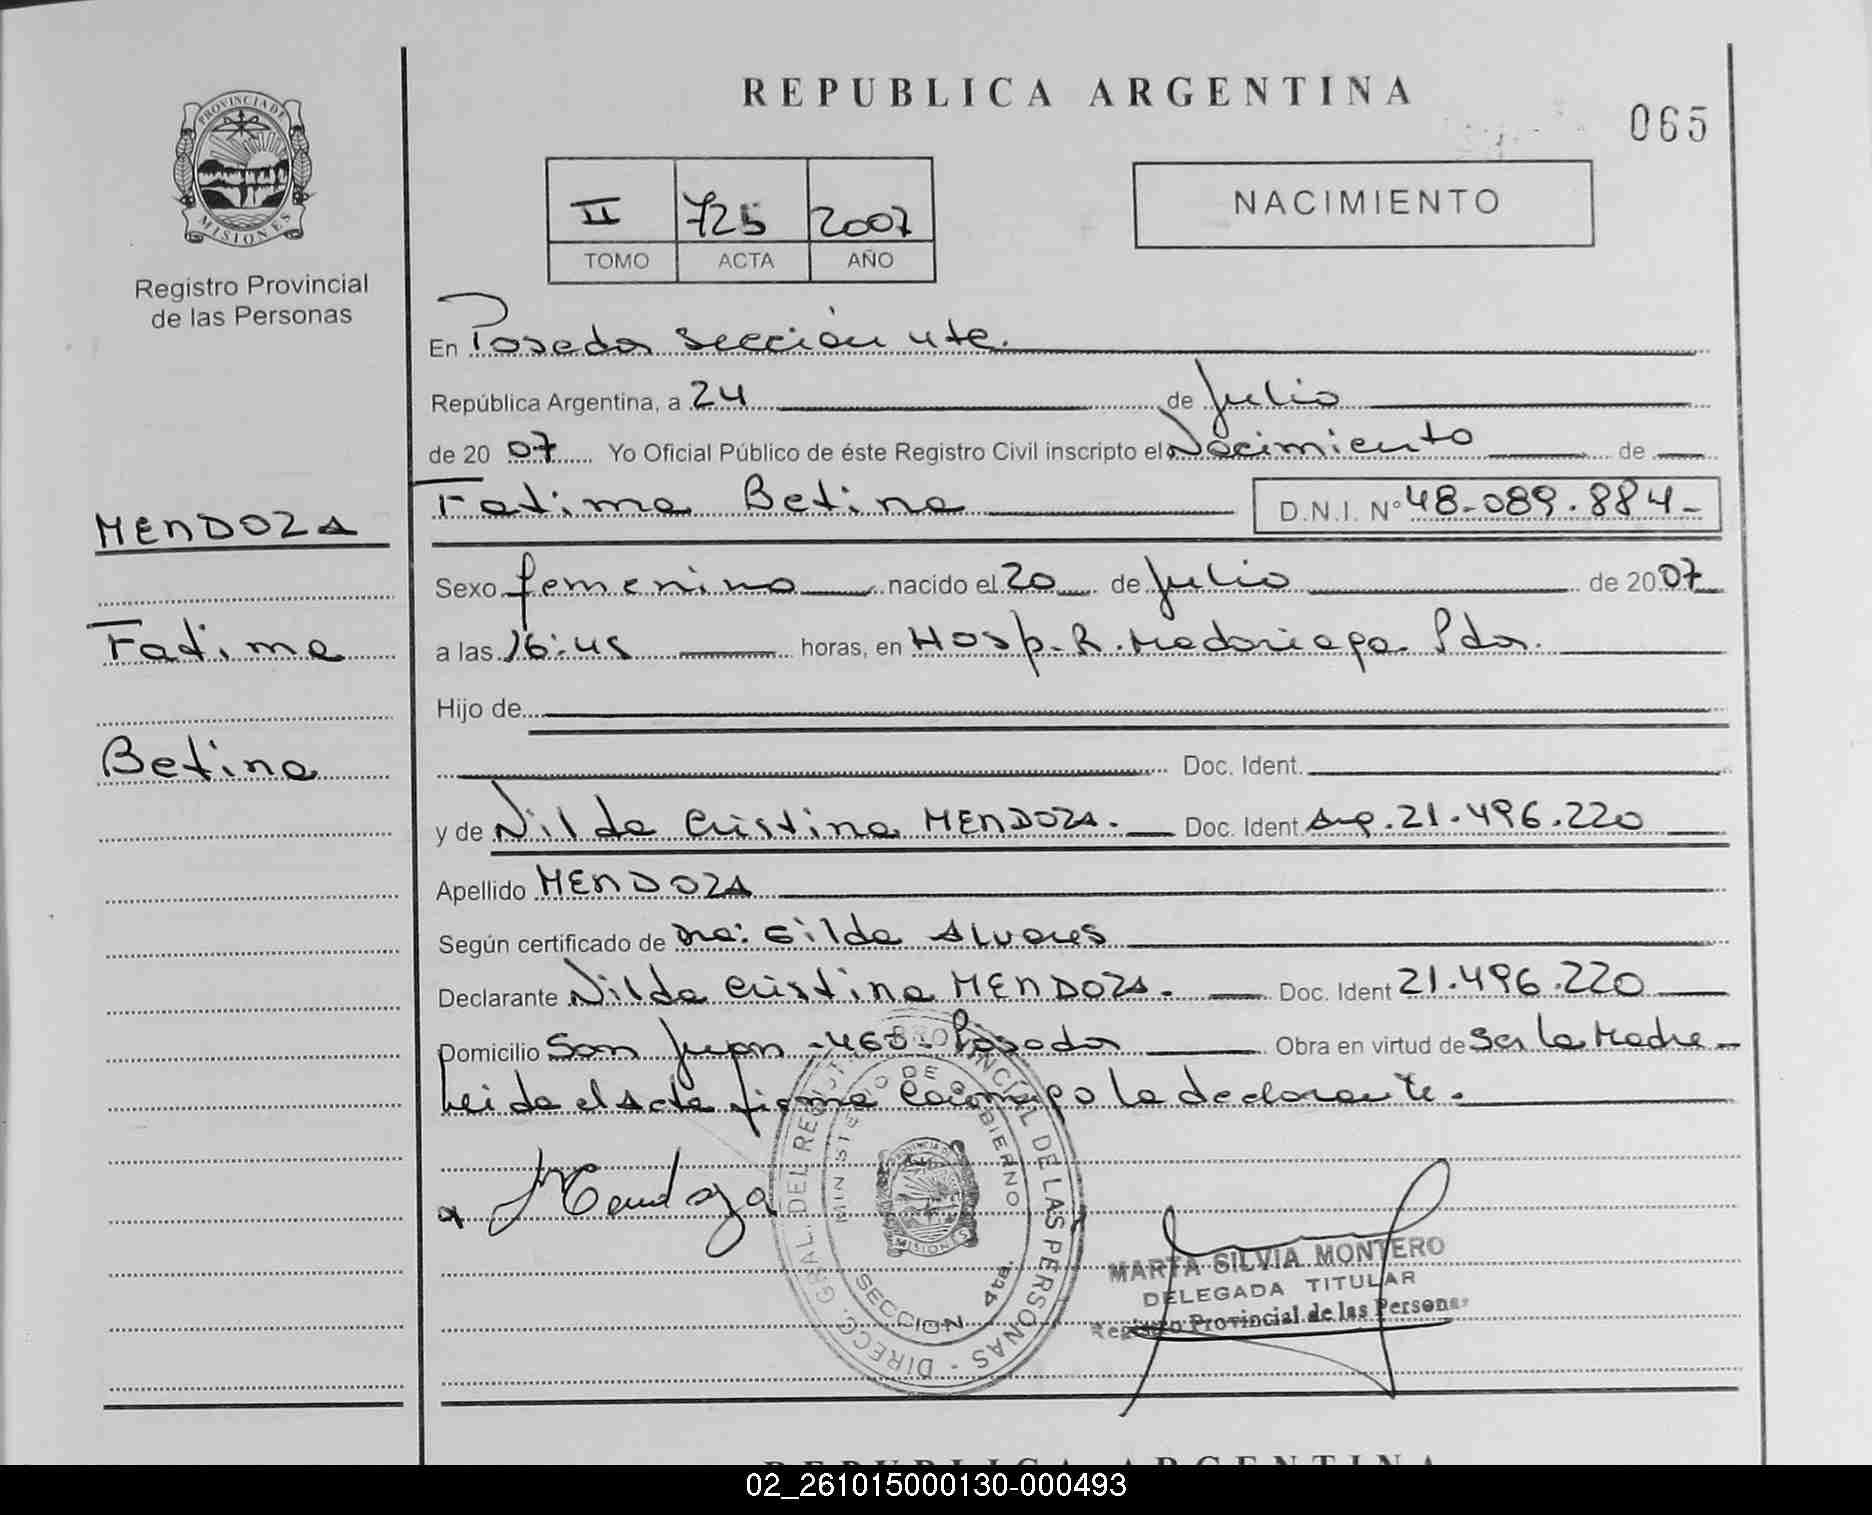 REPUBLICA ARGENTINA
065
PROVINCIA DE
MISIONES
Registro Provincial
de las Personas
II 725 2007
TOMO ACTA AÑO
NACIMIENTO
En Posadas sección 4ta.
República Argentina, a 24 de Julio
de 2007 Yo Oficial Público de éste Registro Civil inscripto el Nacimiento de
Fatima Betina D.N.I. N° 48.089.884-
MENDOZA
Fatima
Betina
Sexo femenino nacido el 20 de Julio de 2007
a las 16:45 horas, en Hosp. R. Madariaga Pdas.
Hijo de
Doc. Ident.
y de Nilda Cristina MENDOZA. Doc. Ident Arg. 21.496.220
Apellido MENDOZA
Según certificado de Dra: Gilda Alvares
Declarante Nilda Cristina MENDOZA. Doc. Ident 21.496.220
Domicilio San Juan Posadas Obra en virtud de Ser la Madre-
Leida el Acta firma conmigo la declarante.
Mendoza
DIRECC. GRAL. DEL REGISTRO PROVINCIAL DE LAS PERSONAS -
MINISTERIO DE GOBIERNO
MISIONES
SECCION 4ta.
MARTA SILVIA MONTERO
DELEGADA TITULAR
Registro Provincial de las Personas
REPUBLICA ARGENTINA
02_261015000130-000493